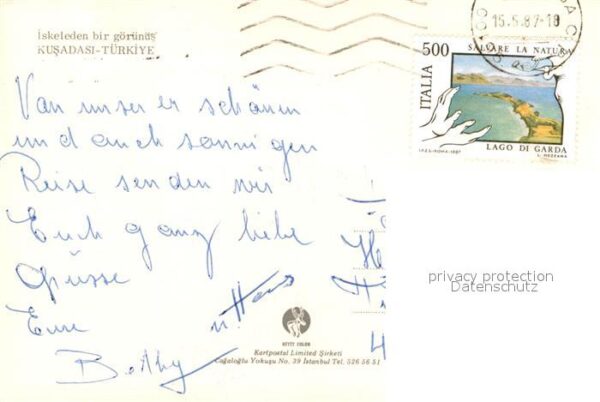 İskeleden bir görünüş
KUŞADASI-TÜRKİYE
15.5.87-18
500
SALVARE LA NATURA
ITALIA
I.P.Z.S.-ROMA-1987
LAGO DI GARDA
Von unser er schönen
und auch sonnigen
Reise senden wir
Euch ganz liebe
Grüsse
Eure
u. Hans
privacy protection
Datenschutz
KEYZT COLOR
Kartpostal Limited Şirketi
Cağaloğlu Yokuşu No. 39 İstanbul Tel. 526 56 51